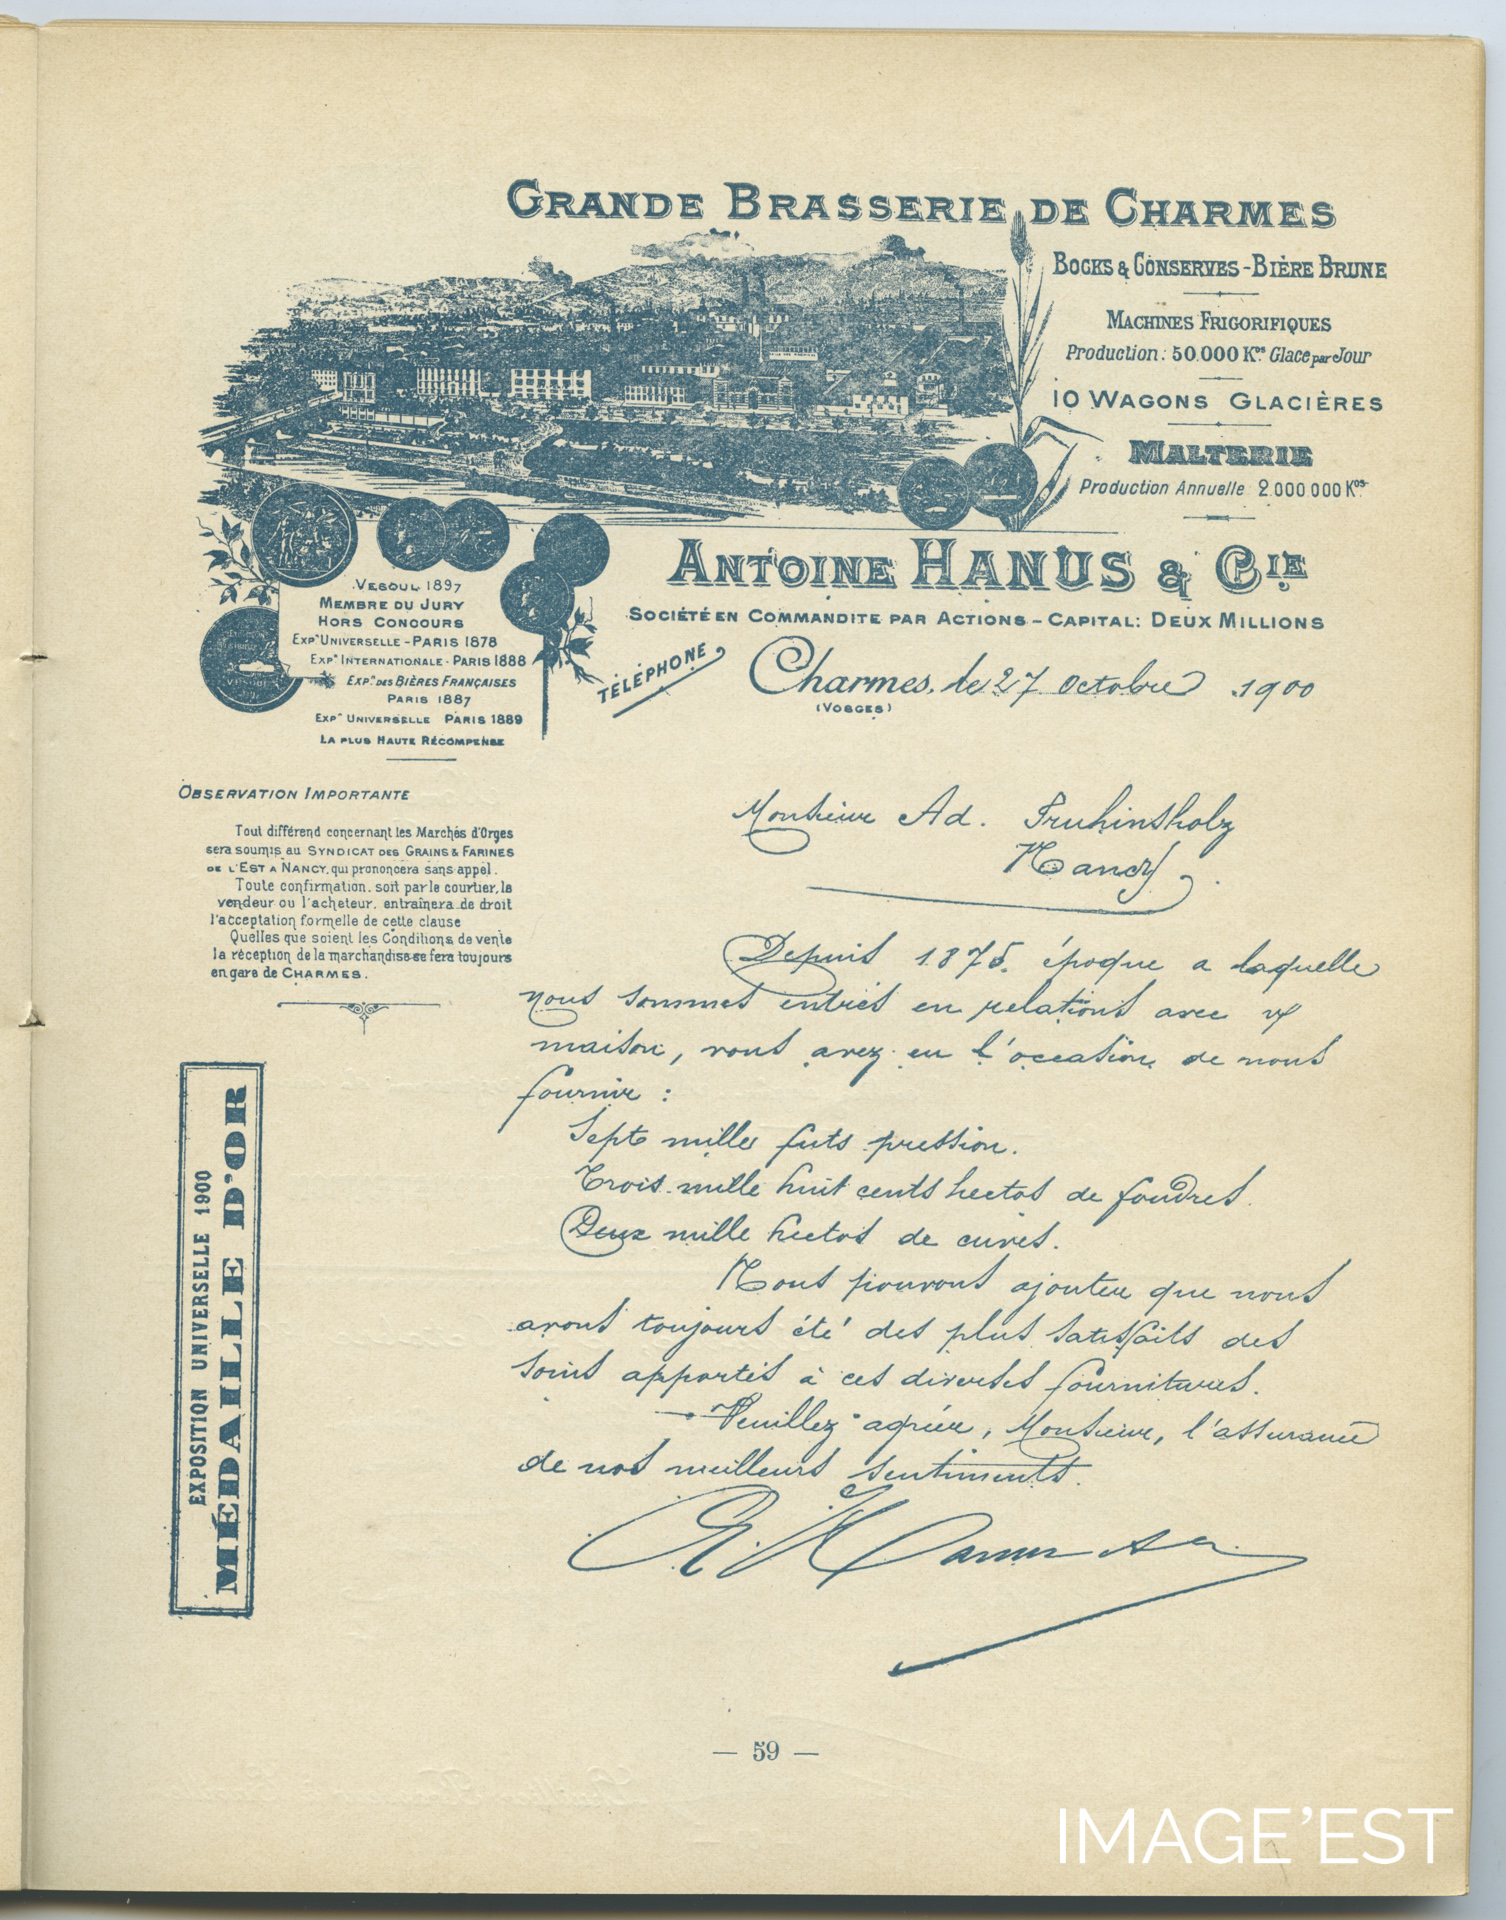 GRANDE BRASSERIE DE CHARMES
BOCKS & CONSERVES - BIÈRE BRUNE
MACHINES FRIGORIFIQUES
Production: 50.000 Kos Glace par Jour
10 WAGONS GLACIÈRES
MALTERIE
Production Annuelle 2.000.000 Kos
ANTOINE HANUS & CIE
SOCIÉTÉ EN COMMANDITE PAR ACTIONS - CAPITAL: DEUX MILLIONS
TÉLÉPHONE
Charmes, le 27 Octobre 1900
(VOSGES)
VESOUL 1897
MEMBRE DU JURY
HORS CONCOURS
EXPon UNIVERSELLE - PARIS 1878
EXPon INTERNATIONALE - PARIS 1888
EXPon DES BIÈRES FRANÇAISES
PARIS 1887
EXPon UNIVERSELLE PARIS 1889
LA PLUS HAUTE RÉCOMPENSE
OBSERVATION IMPORTANTE
Tout différend concernant les Marchés d'Orges
sera soumis au SYNDICAT DES GRAINS & FARINES
DE L'EST A NANCY, qui prononcera sans appel.
Toute confirmation, soit par le courtier, le
vendeur ou l'acheteur, entraînera de droit
l'acceptation formelle de cette clause
Quelles que soient les Conditions de vente
la réception de la marchandise se fera toujours
en gare de CHARMES.
EXPOSITION UNIVERSELLE 1900
MÉDAILLE D'OR
Monsieur Ad. Fruhinsholz
Nancy.
Depuis 1875, époque a laquelle
nous sommes entrés en relations avec vtre
maison, vous avez eu l'occasion de nous
fournir :
Sept mille futs pression.
Trois mille huit cents hectos de foudres.
Deux mille hectos de cuves.
Nous pouvons ajouter que nous
avons toujours été des plus satisfaits des
soins apportés à ces diverses fournitures.
Veuillez agréer, Monsieur, l'assurance
de nos meilleurs sentiments.
A. Hanus & Cie
— 59 —
IMAGE'EST